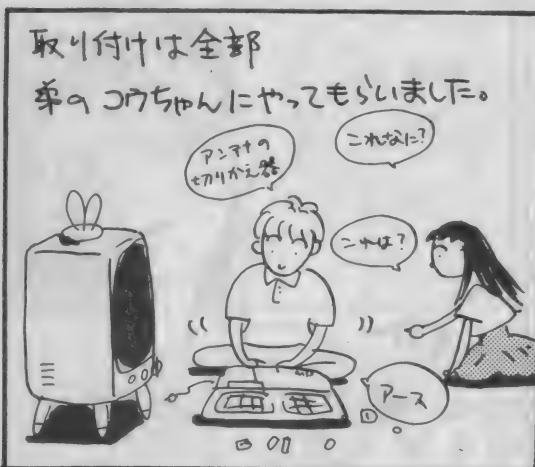 取り付けは全部
弟のコウちゃんにやってもらいました。
これなに?
アンテナの
切りかえ器
これは?
アース